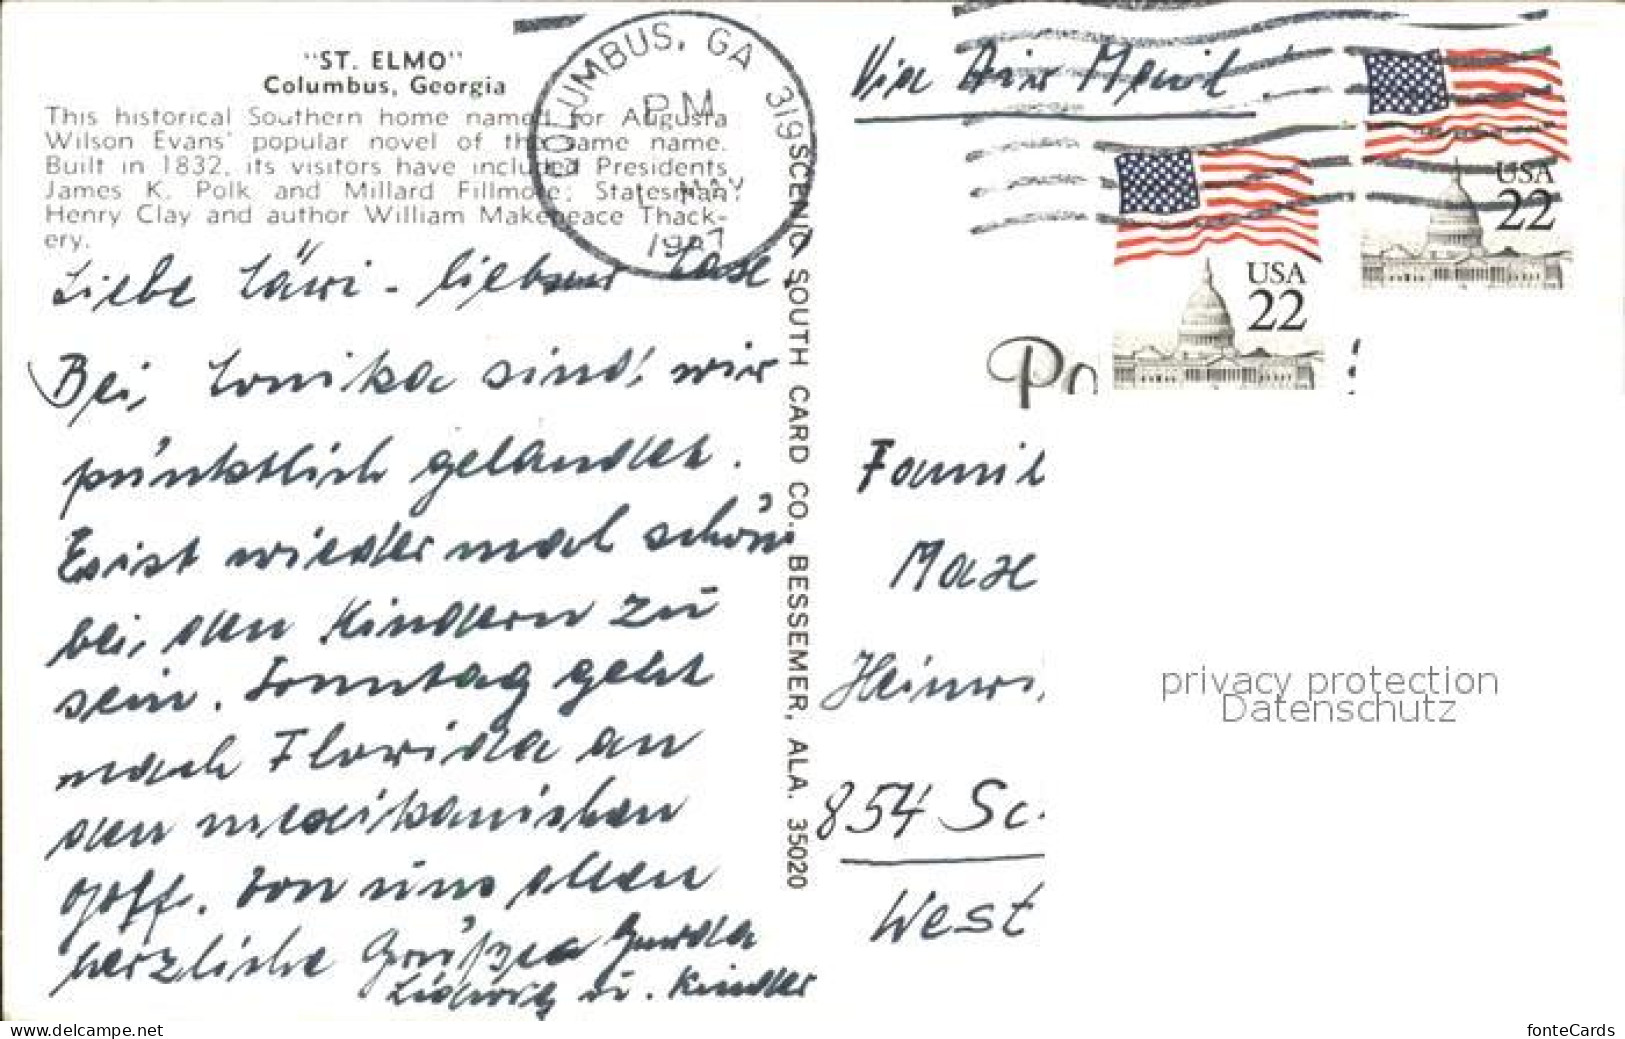 "ST. ELMO"
Columbus, Georgia
This historical Southern home named for Augusta
Wilson Evans' popular novel of the same name.
Built in 1832, its visitors have included Presidents
James K. Polk and Millard Fillmore; Statesman
Henry Clay and author William Makepeace Thack-
ery.
COLUMBUS, GA 319
PM
1 MAY
1987
Liebe
Bei Monika sind wir
pünktlich gelandet.
Es ist wieder mal schön
bei den Kindern zu
sein. Sonntag geht
nach Florida an
den mexikanischen
Golf. Von uns allen
herzliche Grüße Gerda
Ludwig u. Kinder
SCENIC SOUTH CARD CO. BESSEMER, ALA. 35020
Via Air Mail
USA
22
USA
22
Po
Famil
Max
Heinr
854 Sc
West
privacy protection
Datenschutz
www.delcampe.net
fonteCards